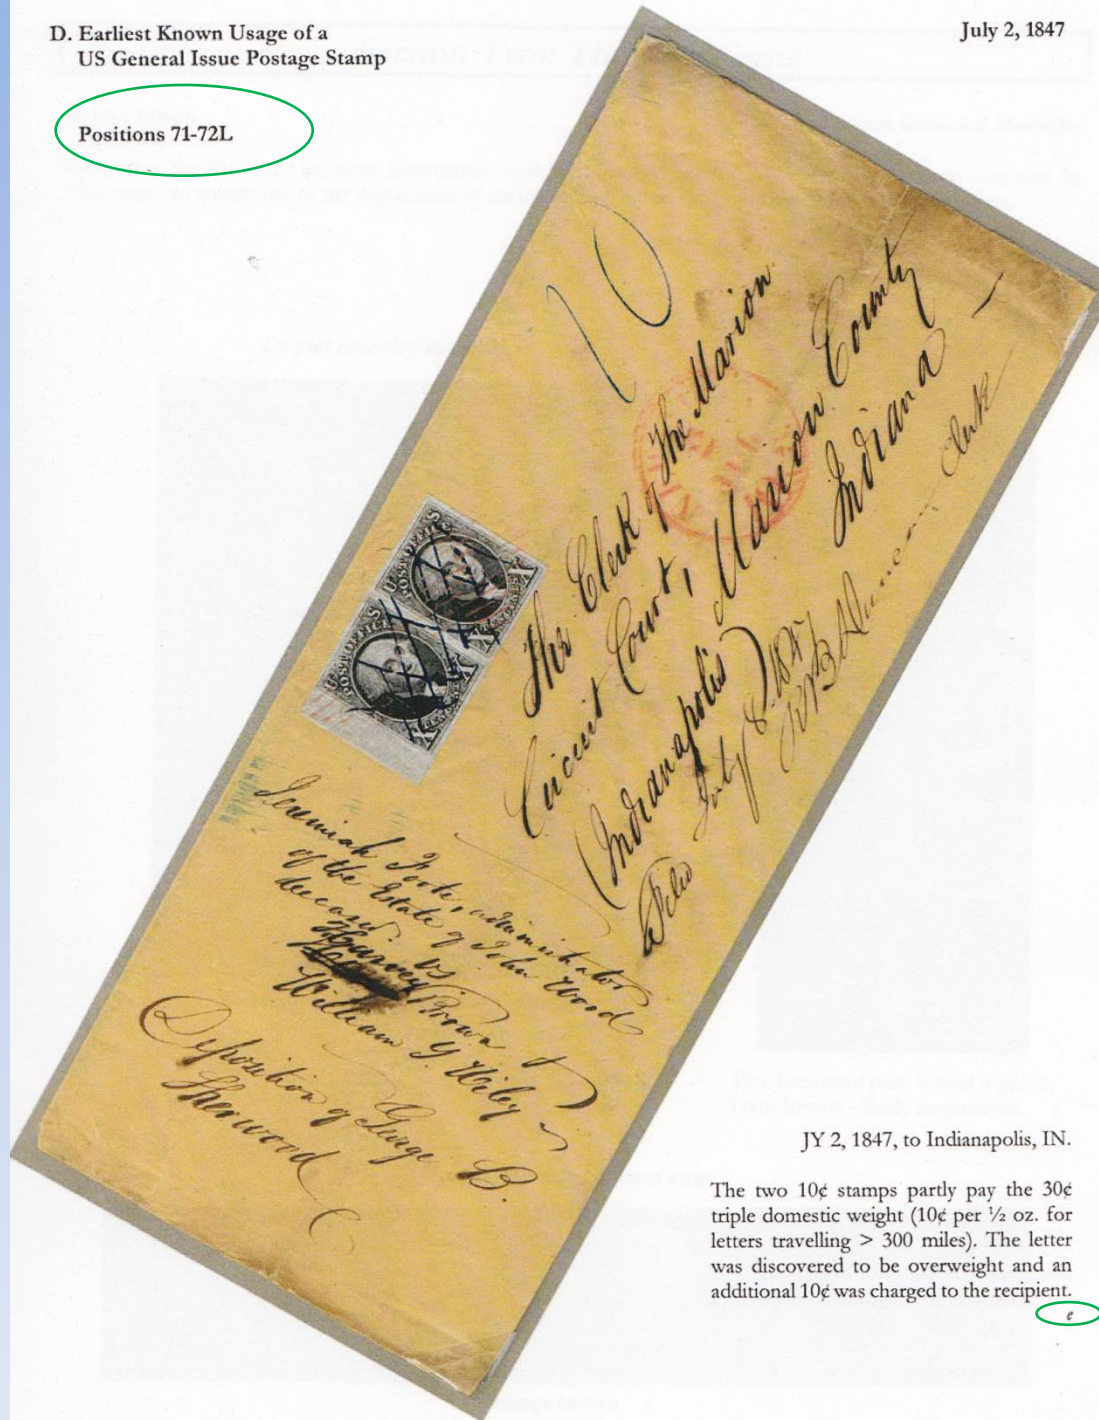 D. Earliest Known Usage of a
US General Issue Postage Stamp
July 2, 1847
Positions 71-72L
10
The Clerk of The Marion
Circuit Court, Marion County
(Indianapolis) Indiana
Filed July 8 1847
Duncan Clerk
U S
POST OFFICE
X X
CENTS
U S
POST OFFICE
X X
CENTS
Jeremiah Foote, administrator
of the Estate of John Wood
deceased vs
Harvey Brown &
William Y. Wiley
Deposition of George B.
Sherwood
JY 2, 1847, to Indianapolis, IN.
The two 10¢ stamps partly pay the 30¢
triple domestic weight (10¢ per ½ oz. for
letters travelling > 300 miles). The letter
was discovered to be overweight and an
additional 10¢ was charged to the recipient.
e